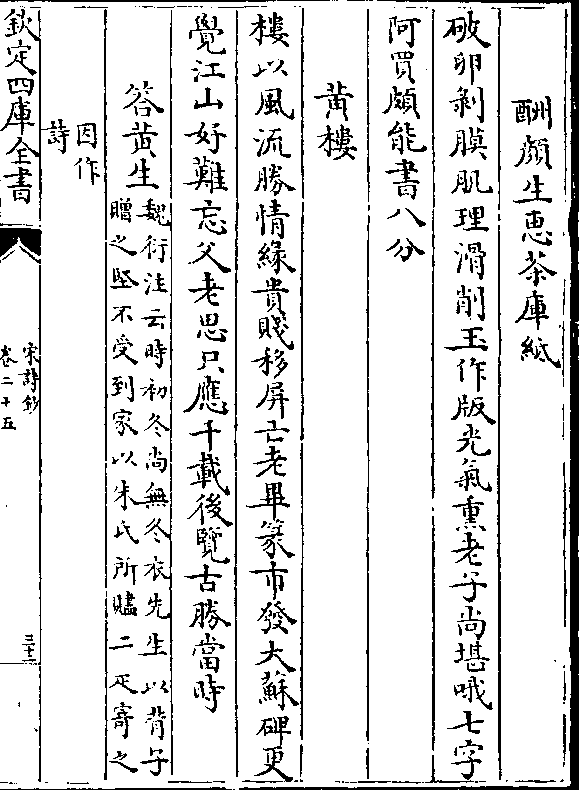 酬顔生惠茶庫紙
破卵剝膜肌理滑削玉作版光氣熏老子尚堪哦七字
阿買頗能書八分
黄樓
樓以風流勝情緣貴賤移屏亡老畢篆市發大蘇碑更
覺江山好難忘父老思只應千載後覽古勝當時
答黄生
魏衍注云時初冬尚無冬衣先生以背子
贈之堅不受到家以朱氏所贐二疋寄之
因作
詩
欽定四庫全書
宋詩鈔
卷二十五
三十二